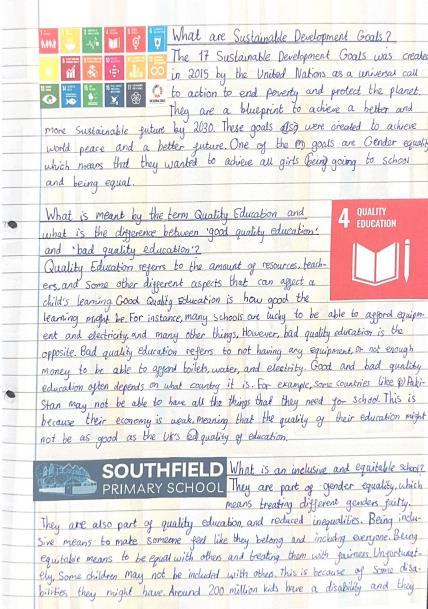 What are Sustainable Development Goals?
The 17 Sustainable Development Goals was created
in 2015 by the United Nations as a universal call
to action to end poverty and protect the planet.
They are a blueprint to achieve a better and
more Sustainable future by 2030. These goals also were created to achieve
world peace and a better future. One of the goals are Gender equality
which means that they wanted to achieve all girls being going to school
and being equal.
What is meant by the term Quality Education and
what is the difference between 'good quality education'
and 'bad quality education'?
4 QUALITY
EDUCATION
Quality Education refers to the amount of resources, teach-
ers, and Some other different aspects that can affect a
child's learning. Good Quality Education is how good the
learning might be. For instance, many Schools are lucky to be able to afford equipm-
ent and electricity, and many other things. However, bad quality education is the
opposite. Bad quality education refers to not having any equipment, or not enough
money to be able to afford toilets, water, and electrity. Good and bad quality
education often depends on what country it is. For example, some countries like Paki-
Stan may not be able to have all the things that they need for school. This is
because their economy is weak, meaning that the quality of their education might
not be as good as the UK's quality of education.
SOUTHFIELD
PRIMARY SCHOOL
What is an inclusive and equitable school?
They are part of gender equality, which
means treating different genders fairly.
They are also part of quality education, and reduced inequalities. Being inclu-
Sive means to make someone feel like they belong and including everyone. Being
equitable means to be equal with others and treating them with fairness. Unfortunat-
ely, Some children may not be included with others. This is because of some disa-
bilities they might have. Around 200 million kids have a disability and they